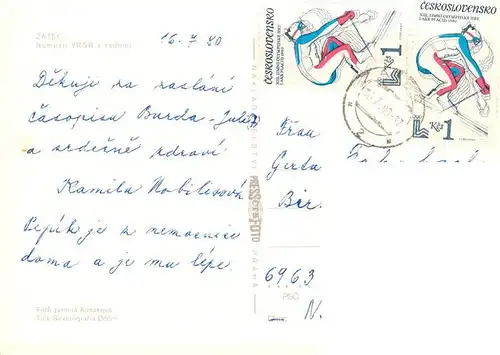 ŽATEC
Náměstí VŘSR s radnicí
16.7.80
Děkuji za zaslání
časopisu Burda - Juli 7
a srdečně zdraví
Kamila Nobilisová
Pepík je z nemocnice
doma a je mu lépe.
Foto Jarmila
Tisk Severografia Děčín
NAKLADATELSTVÍ
PRESSFOTO
PRAHA
ČESKOSLOVENSKO
XIII. ZIMNÍ OLYMPIJSKÉ HRY
LAKE PLACID 1980
Kčs 1
ČESKOSLOVENSKO
XIII. ZIMNÍ OLYMPIJSKÉ HRY
LAKE PLACID 1980
Kčs 1
Frau
Gerta
Bir.
6963
PSČ
N.